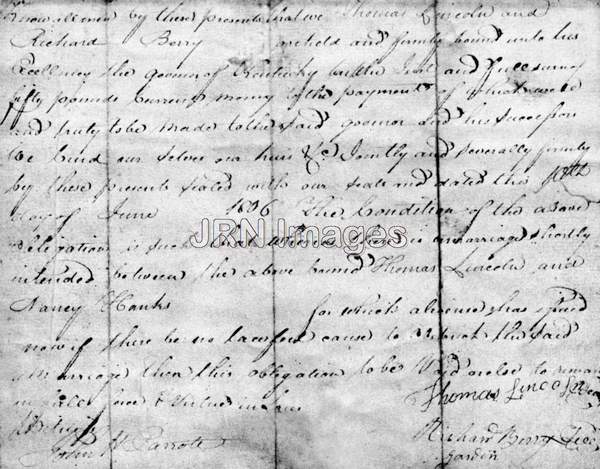 Know all men by these presents that we Thomas Lincoln and
Richard Berry are held and firmly bound unto his
Excellency the governor of Kentucky in the Just and full sum of
fifty pounds Currant money to the payment of which well
and truly to be made to the said governor and his successors
We bind our selves our heirs &c Jointly and severally firmly
by these presents sealed with our seals and dated this 10th
day of June 1806 The Condition of the above
obligation is such that whereas there is a marriage shortly
intended between the above bound Thomas Lincoln and
Nancy Hanks for which a license has issued
now if there be no lawful cause to obstruct the said
marriage then this obligation to be Void or else to remain
in full force & virtue in law
Thomas Lincoln
John H Parrott
Richard Berry
garden
JRN Images